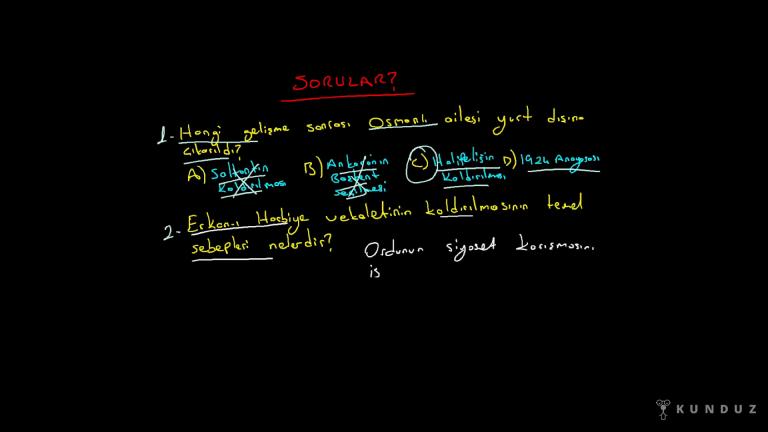 SORULAR?
1. Hangi gelişme sonrası Osmanlı ailesi yurt dışına
çıkarıldı?
A) Saltanatın Kaldırılması B) Ankaranın Başkent seçilmesi C) Halifeliğin Kaldırılması D) 1924 Anayasası
2. Erkan-ı Harbiye vekaletinin kaldırılmasının temel
sebepleri nelerdir? Ordunun siyaset karışmasını
is
KUNDUZ